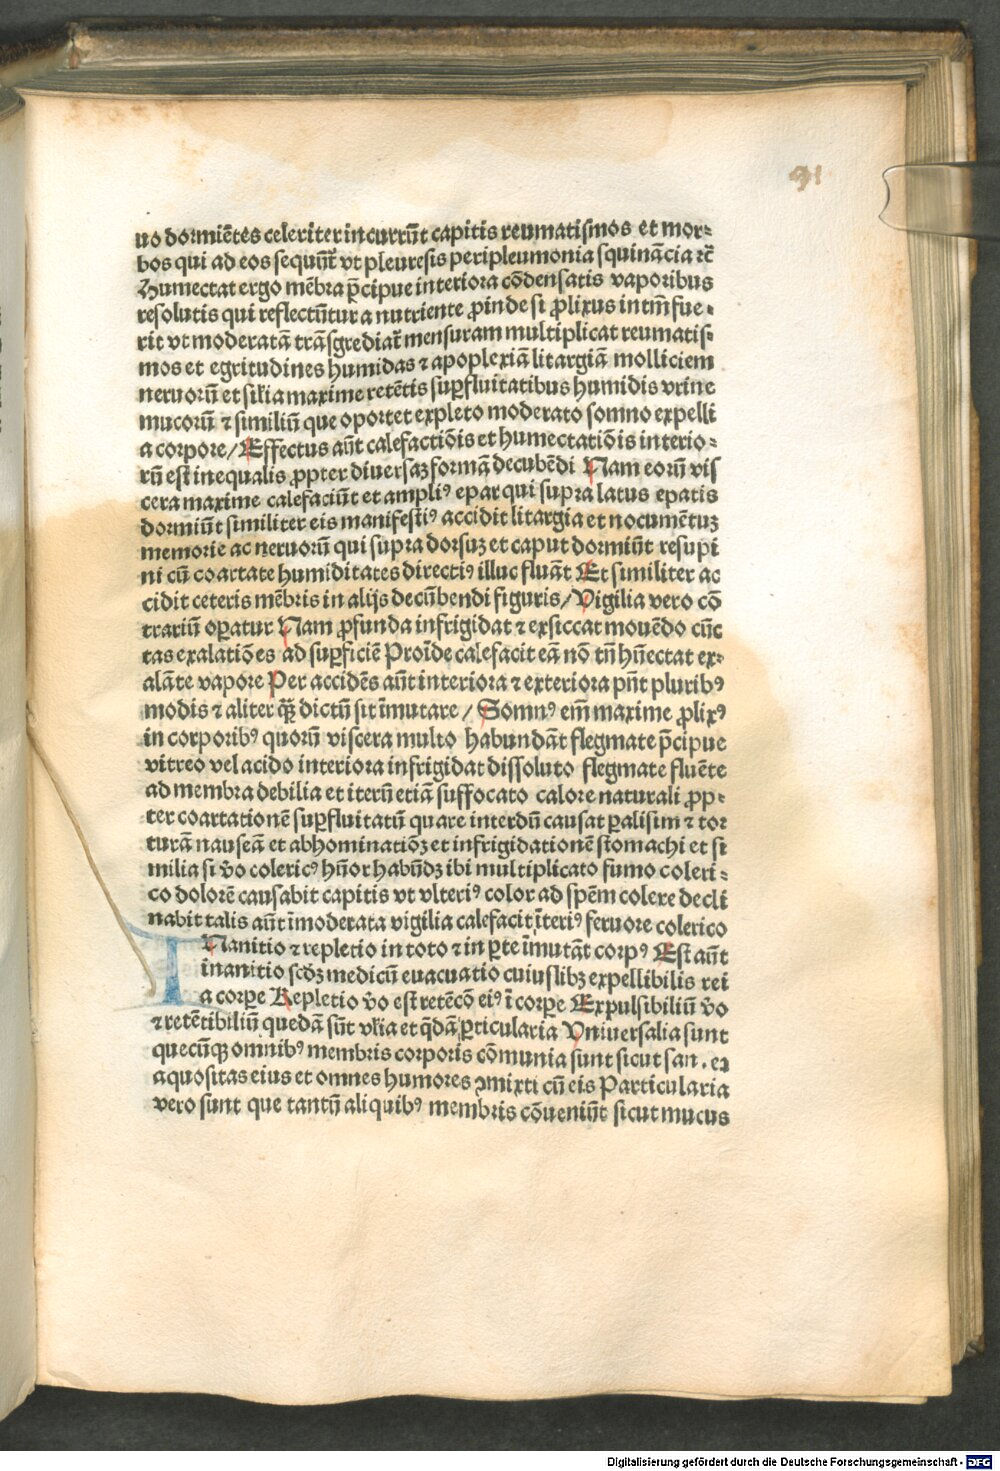 91
uo dormiētes celeriter incurrūt capitis reumatismos et mor⸗
bos qui ad eos sequūt᷑ vt pleuresis peripleumonia squinācia ⁊c̄
Humectat ergo mēbra p̄cipue interiora cōdensatis vaporibus
resolutis qui reflectūtur a nutriente ꝓinde si ꝓlixus int̄m fue⸗
rit vt moderatā trāsgrediat᷑ mensuram multiplicat reumatis⸗
mos et egritudines humidas ⁊ apoplexiā litargiā molliciem
neruorū et sil̄ia maxime retētis suꝑfluitatibus humidis vrine
mucorū ⁊ similiū que oportet expleto moderato somno expelli
a corpore/ Effectus aūt calefactiōis et humectatiōis interio⸗
rū est inequalis ꝓpter diuersaꝫ formā decubēdi Nam eorū vis
cera maxime calefaciūt et ampliꝰ epar qui supra latus epatis
dormiūt similiter eis manifestiꝰ accidit litargia et nocumētuꝫ
memorie ac neruorū qui supra dorsuꝫ et caput dormiūt resupi
ni cū coartate humiditates directiꝰ illuc fluāt Et similiter ac
cidit ceteris mēbris in alijs decūbendi figuris/ Vigilia vero cō
trariū oꝑatur Nam ꝓfunda infrigidat ⁊ exsiccat mouēdo cūc
tas exalatiōes ad suꝑficiē Proīde calefacit eā nō tn̄ hūectat ex⸗
alāte vapore Per accidēs aūt interiora ⁊ exteriora pn̄t pluribꝰ
modis ⁊ aliter q̄ꝫ dictū sit īmutare / Somnꝰ em̄ maxime ꝓlixꝰ
in corporibꝰ quorū viscera multo habundāt flegmate p̄cipue
vitreo vel acido interiora infrigidat dissoluto flegmate fluēte
ad membra debilia et iterū etiā suffocato calore naturali ꝓp⸗
ter coartationē suꝑfluitatū quare interdū causat ꝑalisim ⁊ tor
turā nauseā et abhominatiōꝫ et infrigidationē stomachi et si
milia si v̄o colericꝰ hūor habūdꝫ ibi multiplicato fumo coleri⸗
co dolorē causabit capitis vt vlteriꝰ color ad spēm colere decli
nabit talis aūt īmoderata vigilia calefacit īteriꝰ feruore colerico
INanitio ⁊ repletio in toto ⁊ in ꝑte īmutāt corpꝰ Est aūt
inanitio scd̄ꝫ medicū euacuatio cuiuslibꝫ expellibilis rei
a corꝑe Repletio v̄o est retētō eiꝰ ī corꝑe Expulsibiliū v̄o
⁊ retētibiliū quedā sūt vl̄ia et q̄dā ꝑticularia Vniuersalia sunt
quecūqꝫ omnibꝰ membris corporis cōmunia sunt sicut san. eꝛ
aquositas eius et omnes humores ꝯmixti cū eis Particularia
vero sunt que tantū aliquibꝰ membris cōueniūt sicut mucus
Digitalisierung gefördert durch die Deutsche Forschungsgemeinschaft - DFG